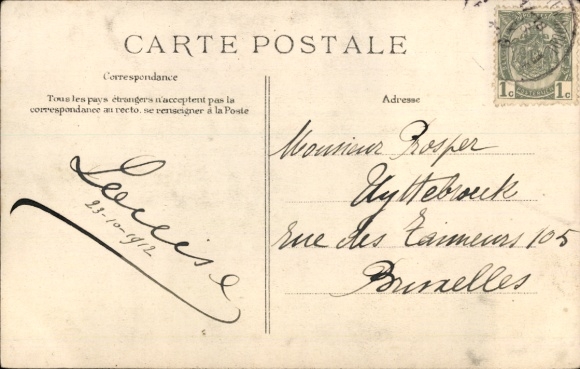 CARTE POSTALE
Correspondance
Tous les pays étrangers n'acceptent pas la
correspondance au recto. se renseigner à la Poste
Adresse
Louise
23-10-1912
Monsieur Prosper
Uyttebrouck
Rue des Tanneurs 105
Bruxelles
1c 1c